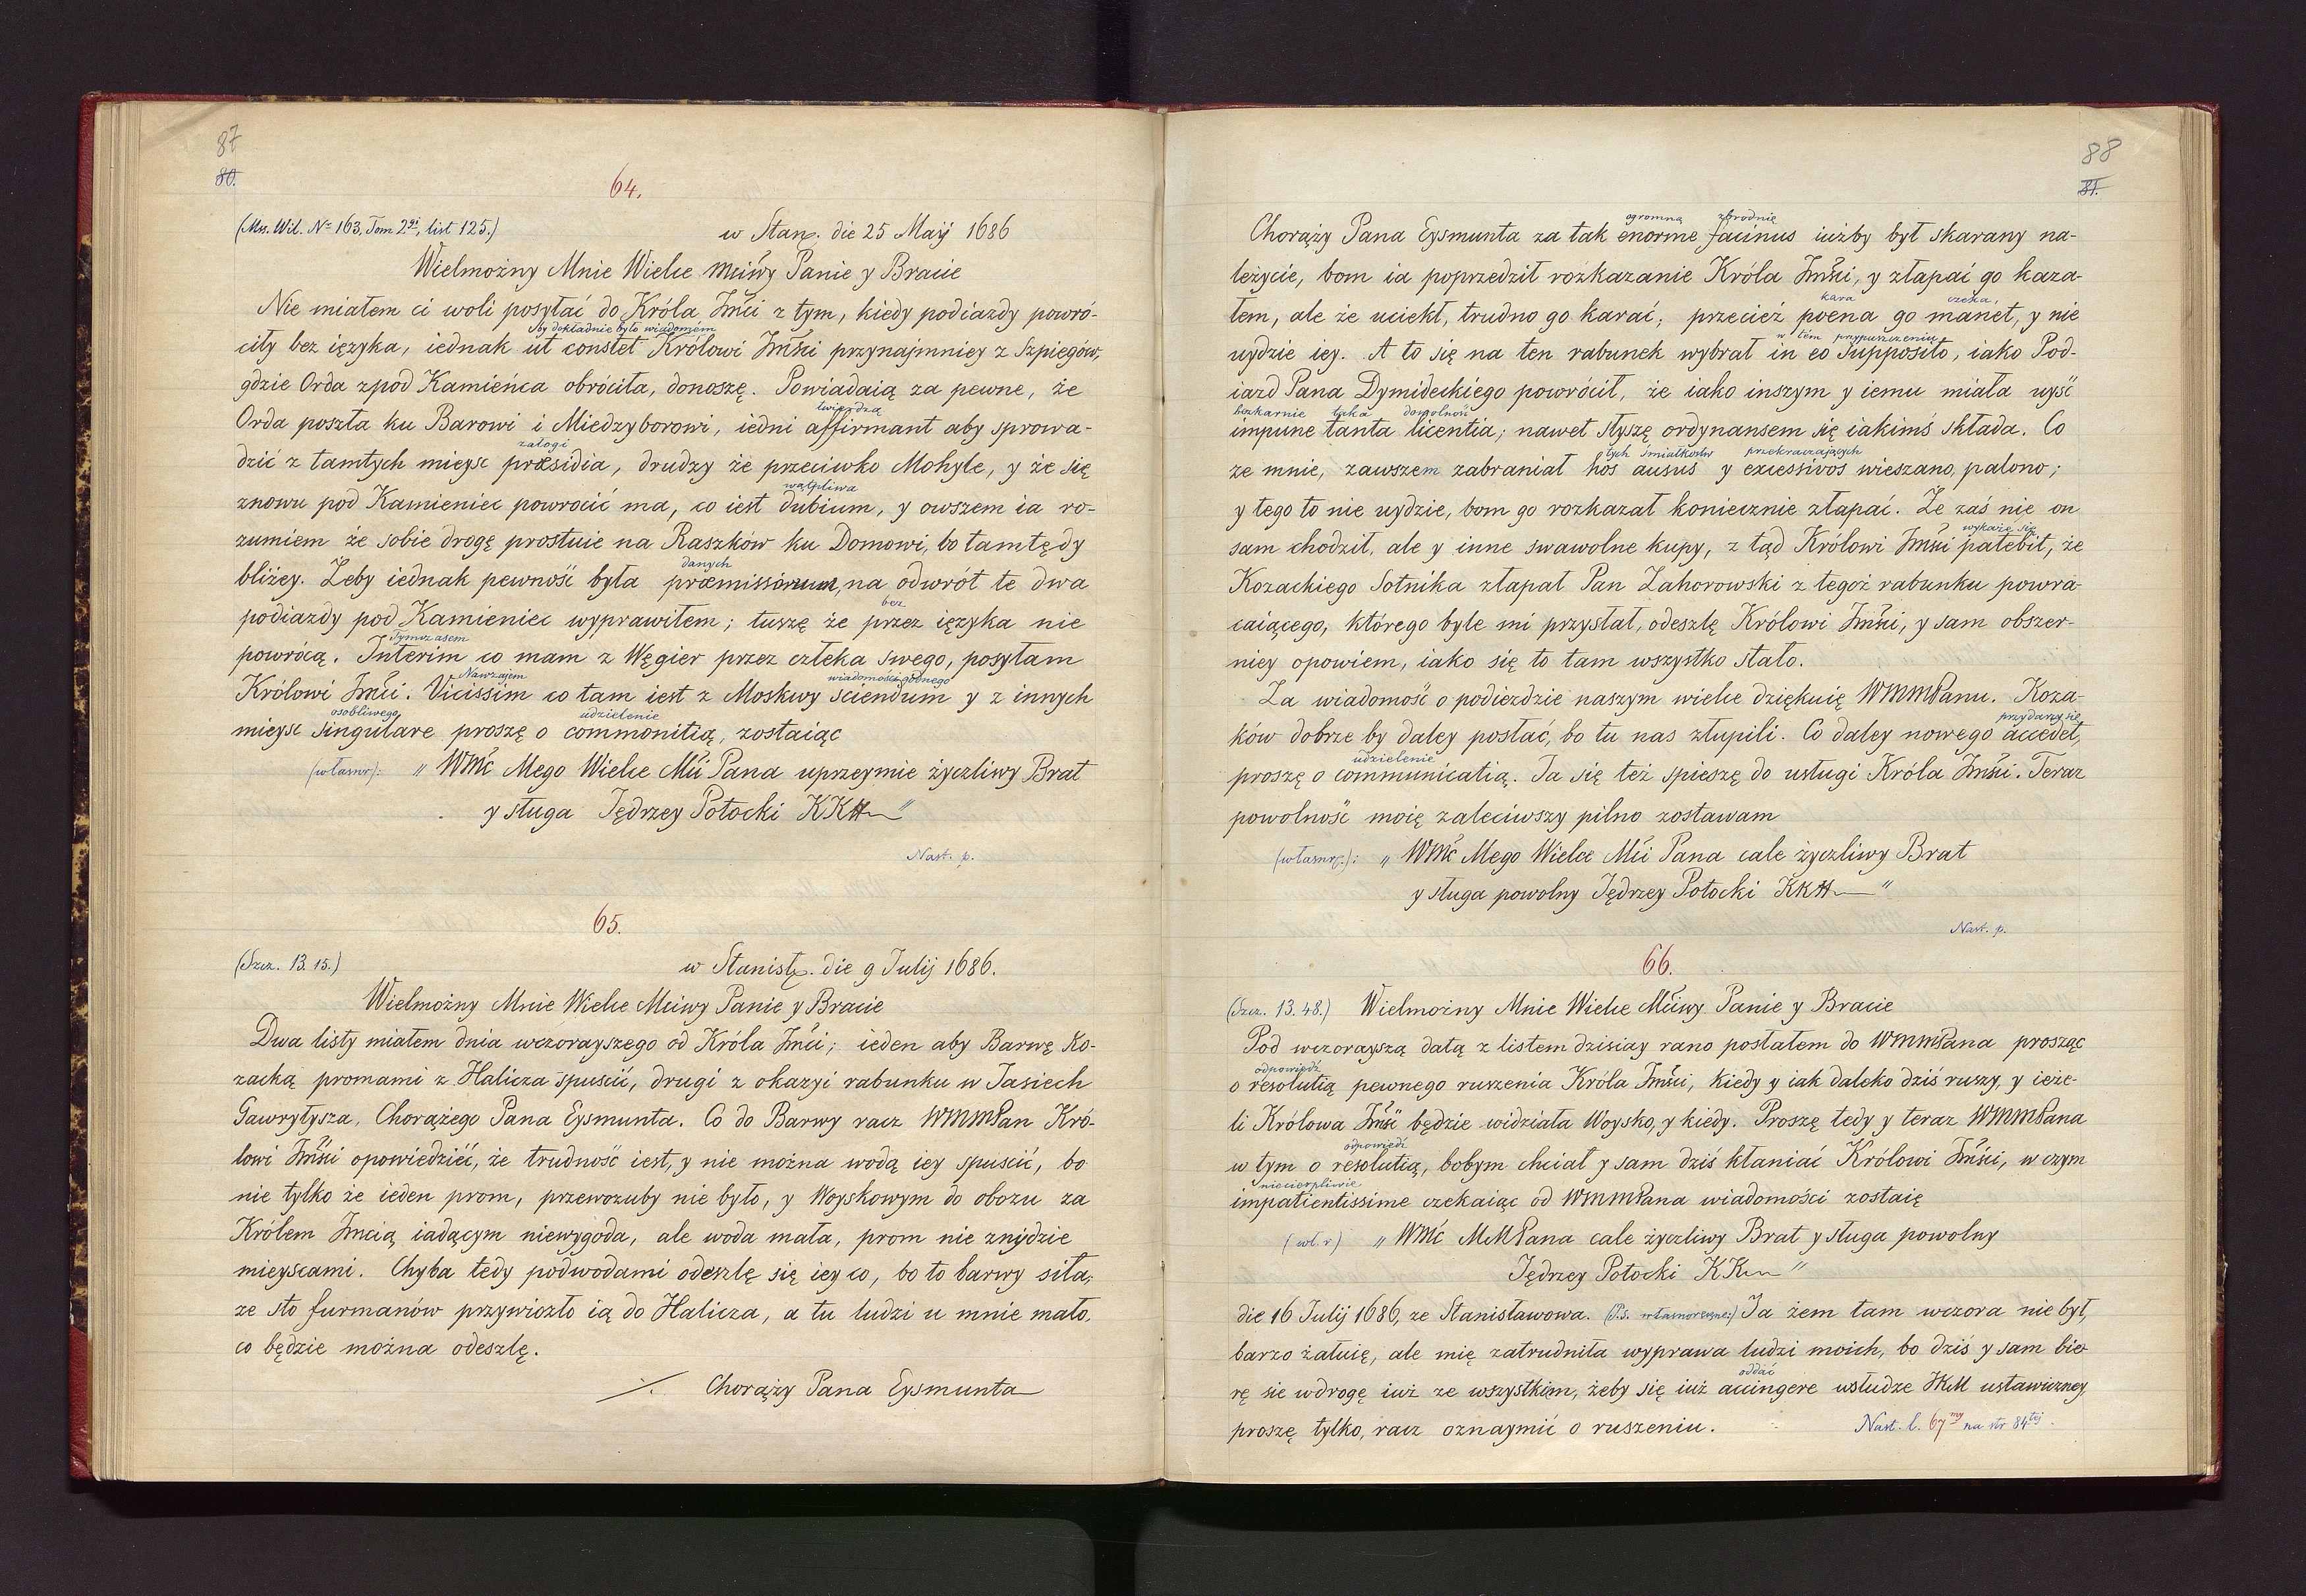 87
80.
64.
(Mss. Wil. No 163, Tom 2gi, list 125.)
w Stan. die 25 Maÿ 1686
Wielmożny Mnie Wielce Mciwy Panie y Bracie
Nie miałem ci woli posyłać do Króla Jmści z tym, kiedy podiazdy powró-
by dokładnie było wiadomém
ciły bez ięzyka, iednak ut constet Królowi Jmści przynajmniey z Szpiegów,
gdzie Orda zpod Kamieńca obróciła, donoszę. Powiadaią za pewne, że
twierdzą
Orda poszła ku Barowi i Miedzyborowi, iedni affirmant aby sprowa-
załogi
dzić z tamtych mieysc præsidia, drudzy że przeciwko Mohyle, y że się
wątpliwa
znowu pod Kamieniec powrocić ma, co iest dubium, y owszem ia ro-
zumiem że sobie drogę prostuie na Raszków ku Domowi, bo tamtędy
danych
bliżey. Żeby iednak pewność była præmissórum, na odwrót te dwa
bez
podiazdy pod Kamieniec wyprawiłem; tuszę że przez ięzyka nie
Tymczasem
powrócą. Interim co mam z Węgier przez człeka swego, posyłam
Nawzajem wiadomości godnego
Królowi Jmści. Vicissim co tam iest z Moskwy sciendum y z innych
osobliwego udzielenie
mieysc singulare proszę o commonitią, zostaiąc
(własnr): „ WMć Mego Wielce Mći Pana uprzeymie życzliwy Brat
y sługa Jędrzey Potocki KKH "
Nast. p.
65.
(Szcz. 13. 15.)
w Stanisł. die 9 Julij 1686.
Wielmożny Mnie Wielce Mciwy Panie y Bracie
Dwa listy miałem dnia wczorayszego od Króla Jmści; ieden aby Barwę Ko-
zacką promami z Halicza spuscić, drugi z okazyi rabunku w Jasiech
Gawryłysza, Chorążego Pana Eysmunta. Co do Barwy racz WMMPan Kró-
lowi Jmści opowiedzieć, że trudność iest, y nie można wodą iey spuscić, bo
nie tylko że ieden prom, przewozuby nie było, y Woyskowym do obozu za
Królem Jmcią iadącym niewygoda, ale woda mała, prom nie znÿdzie
mieyscami. Chyba tedy podwodami odeszlę się iey co, bo to barwy siła,
ze sto furmanów przywiozło ią do Halicza, a tu ludzi u mnie mało,
co będzie można odeszlę.
./. Chorąży Pana Eysmunta
88
81.
ogromną zbrodnię
Chorąży Pana Eysmunta za tak enorme facinus iużby był skarany na-
leżycie, bom ia poprzedził rozkazanie Króla Jmści, y złapać go kaza-
kara czeka,
łem, ale że uciekł, trudno go karać; przecież poena go manet, y nie
w tém przypuszczeniu
uydzie iey. A to się na ten rabunek wybrał in eo supposito, iako Pod-
iazd Pana Dymideckiego powrócił, że iako inszym y iemu miała uyść
bezkarnie taka dowolność
impune tanta licentia; nawet słyszę ordynansem się iakimś składa. Co
tych śmiałków przekraczających
ze mnie, zawszem zabraniał hos ausus y excessivos wieszano, palono;
y tego to nie uydzie, bom go rozkazał koniecznie złapać. Że zaś nie on
wykaże się
sam chodził, ale y inne swawolne kupy, z tąd Królowi Jmści patebit, że
Kozackiego Sotnika złapał Pan Zahorowski z tegoż rabunku powra-
caiącego, którego byle mi przysłał, odeszlę Królowi Jmści, y sam obszer-
niey opowiem, iako się to tam wszystko stało.
Za wiadomość o podiezdzie naszym wielce dziękuię WMMPanu. Koza-
przydarzy się
ków dobrze by daley posłać, bo tu nas złupili. Co daley nowego accedet,
udzielenie
proszę o communicatią. Ja się też spieszę do usługi Króla Jmści. Teraz
powolność moię zaleciwszy pilno zostawam
(własnrp.): „ WMć Mego Wielce Mći Pana cale życzliwy Brat
y sługa powolny Jędrzey Potocki KKH "
Nast. p.
66.
(Szcz. 13. 48.) Wielmożny Mnie Wielce Mciwy Panie y Bracie
Pod wczorayszą datą z listem dzisiay rano posłałem do WMMPana prosząc
odpowiedź
o resolutią pewnego ruszenia Króla Jmści, kiedy y iak daleko dziś ruszy, y ieże-
li Królowa Jmść będzie widziała Woysko, y kiedy. Proszę tedy y teraz WMMPana
odpowiedź
w tym o resolutią, bobym chciał y sam dziś kłaniać Królowi Jmści, w czym
niecierpliwie
impatientissime czekaiąc od WMMPana wiadomości zostaię
(wł. r.) „ WMć MMPana cale życzliwy Brat y sługa powolny
Jędrzey Potocki KK "
die 16 Julij 1686, ze Stanisławowa. (P.S. własnoręczne:) Ja żem tam wczora nie był,
barzo żałuię, ale mię zatrudniła wyprawa ludzi moich, bo dziś y sam bie-
oddać
rę sie wdrogę iuż ze wszystkim, żeby się iuż accingere usłudze JKM ustawiczney,
proszę tylko, racz oznaymić o ruszeniu.
Nast. l. 67my na str 84tej.